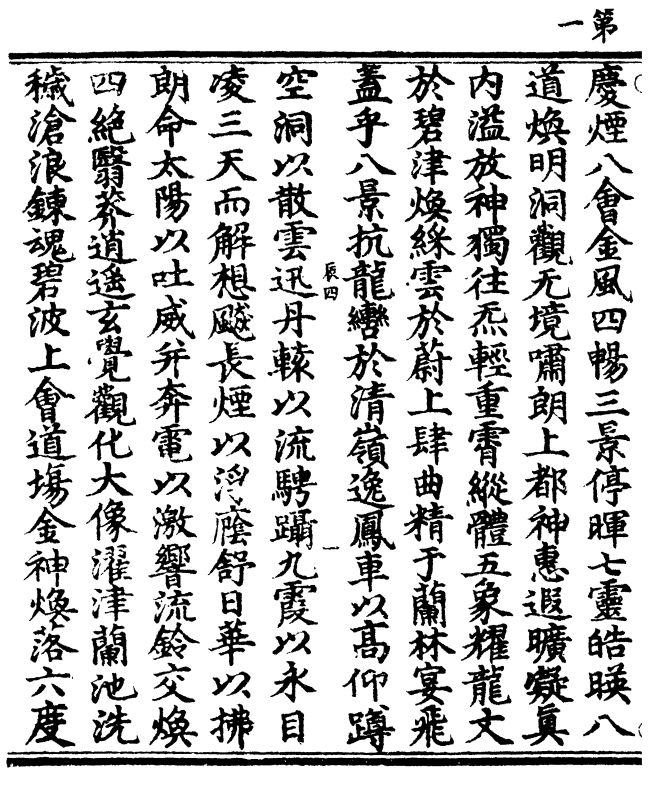 第一
慶煙八會金風四暢三景停暉七靈皓暎八
道煥明洞觀无境嘯朗上都神惠遐曠凝真
内溢放神獨往炁輕重霄縱體五象耀龍文
於碧津煥綵雲於蔚上肆曲精于蘭林宴飛
蓋乎八景抗龍轡於清嶺逸鳳車以高仰蹲
辰四
一
空洞以散雲迅丹轅以流騁躡九霞以永目
凌三天而解想飈長煙以浮蔭舒日華以拂
朗命太陽以吐威并奔電以激響流鈴交煥
四絶翳莽逍遥玄覺觀化大像濯津蘭池洗
穢滄浪鍊魂碧波上會道場金神煥落六度